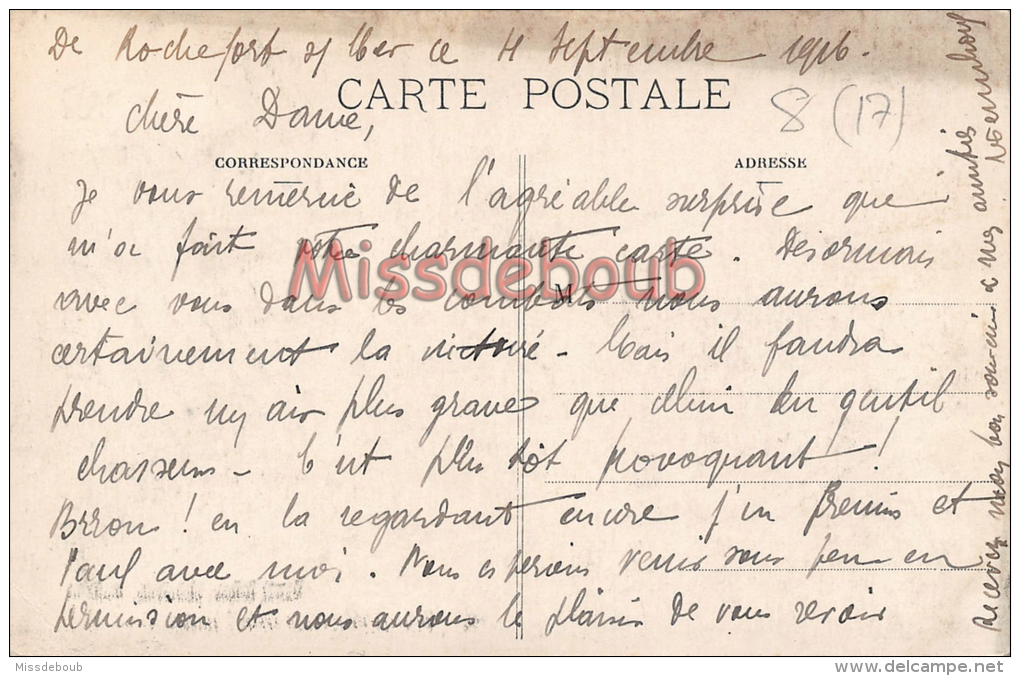 De Rochefort s/ Mer ce 4 Septembre 1916.
CARTE POSTALE
8 (17)
chère Dame,
CORRESPONDANCE
ADRESSE
Je vous remercie de l'agréable surprise que
m'a fait votre charmante carte. Désormais
avec vous dans les combats nous aurons
certainement la victoire - Mais il faudra
prendre un air plus grave que celui du gentil
chasseur - C'est plutôt provoquant !
Brrou ! en la regardant encore j'en frémis et
Paul avec moi. Nous espérons venir sous peu en
permission et nous aurons le plaisir de vous revoir
Recevez mon bon souvenir & mes amitiés
M
Missdeboub
Missdeboub
www.delcampe.net